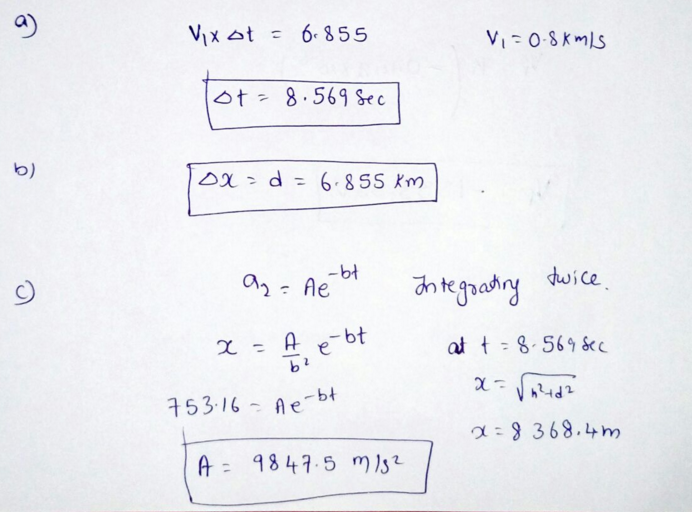 a) V₁ x Δt = 6.855 V₁ = 0.8 Km/s
Δt = 8.569 Sec
b) Δx = d = 6.855 Km
c) a₂ = Ae^-bt Integrating twice.
x = A/b² e^-bt at t = 8.569 Sec
x = √h²+d²
753.16 = Ae^-bt
x = 8368.4m
A = 9847.5 m/s²